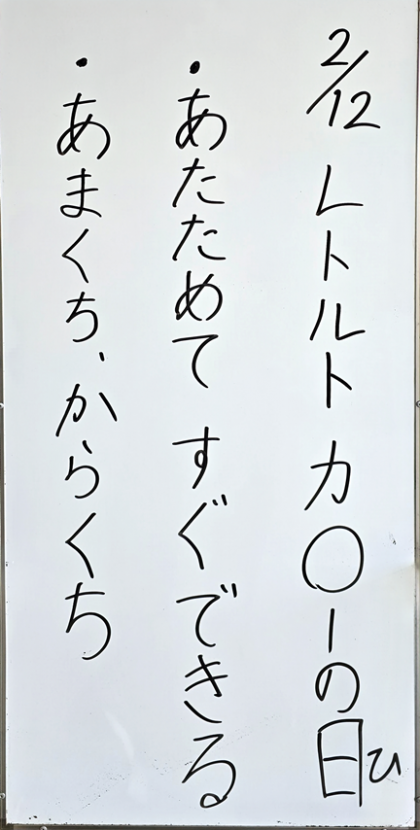 2/12 レトルト カ〇ーの日ひ
・あたためて すぐできる
・あまくち、からくち